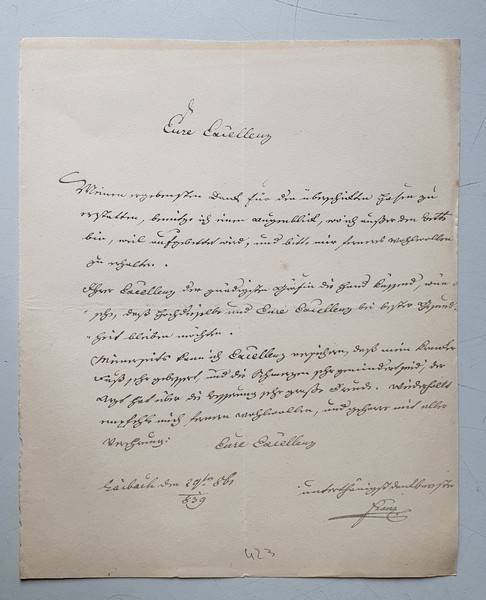 Eure Excellenz
Meinen ergebensten Dank für die überschickten Hasen zu
erstatten, benütze ich einen Augenblick, wo ich außer dem Bette
bin, weil aufgebettet wird, und bitte mir ferners Wohlwollen
zu erhalten.
Ihrer Excellenz der gnädigsten Gräfin die Hand küssend, wün-
sche, daß Hochdieselbe und Eure Excellenz bei bester Gesund-
heit bleiben möchten.
Meinerseits kann ich Excellenz versichern, daß mein kranker
Fuß sehr gebessert, und die Schmerzen sehr gemindert sind, der
Arzt hat über die Besserung sehr große Freude. Wiederholt
empfehle mich fernern Wohlwollen, und geharre mit aller
Verehrung:
Eure Excellenz
Laibach den 29ten
839
unterthänigst dankbarster
Franz
423